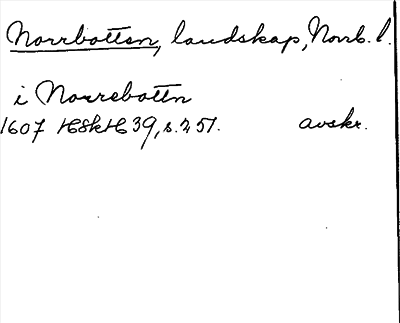 Norrbotten, landskap, Norrb. l.
i Norrebottn
1607 HSkH 39, s. 251. avskr.